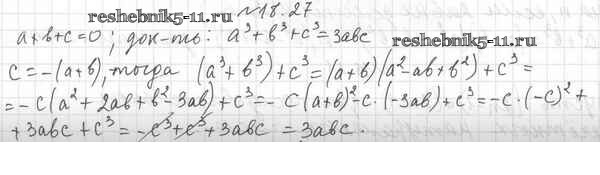 reshebnik5-11.ru №18.27
a+b+c=0; док-ть: a³+b³+c³=3abc
reshebnik5-11.ru
c=-(a+b), тогда (a³+b³)+c³=(a+b)(a²-ab+b²)+c³=
=-c(a²+2ab+b²-3ab)+c³=-c(a+b)²-c·(-3ab)+c³=-c·(-c)²+
+3abc+c³=-c³+c³+3abc=3abc.